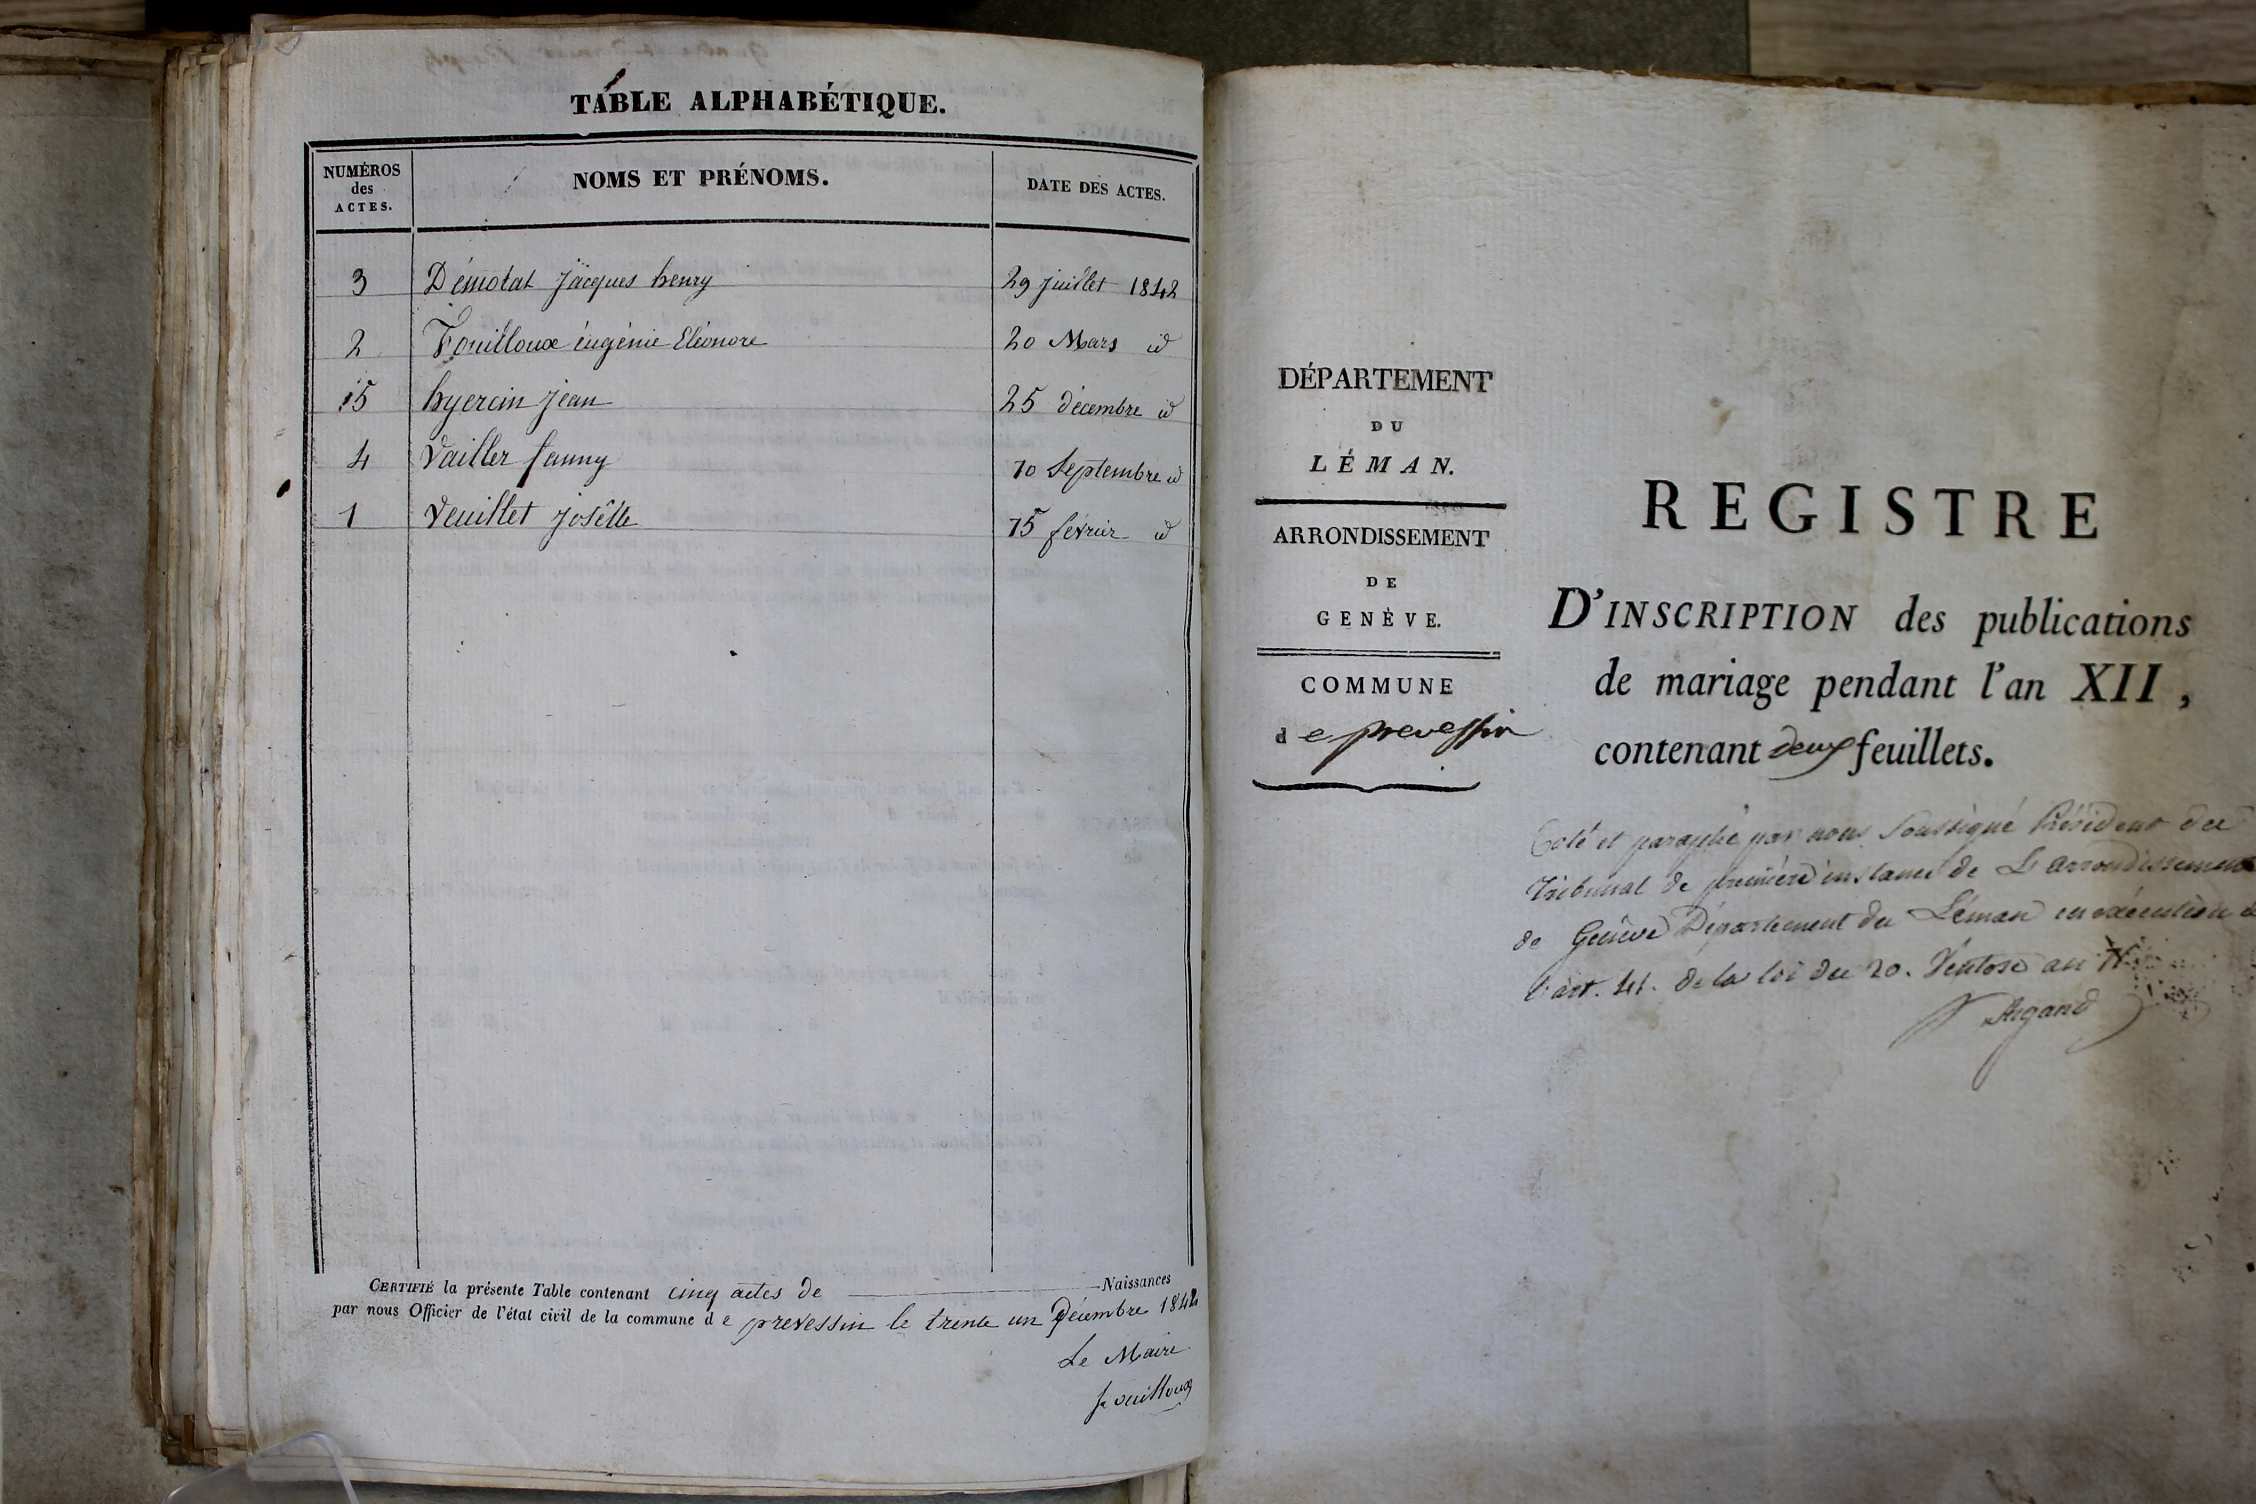 TABLE ALPHABÉTIQUE.
NUMÉROS
des
ACTES.
NOMS ET PRÉNOMS.
DATE DES ACTES.
3 Démolat Jacques henry 29 juillet 1842
2 Fouilloux éugénie Eléonore 20 Mars id
5 hyercin Jean 25 décembre id
4 Vailler fanny 10 Septembre id
1 Veuillet josette 15 février id
CERTIFIÉ la présente Table contenant cinq actes de Naissances
par nous Officier de l'état civil de la commune de prevessin le trente un Décembre 1842
Le Maire
fouilloux
DÉPARTEMENT
DU
LÉMAN.
ARRONDISSEMENT
DE
GENÈVE.
COMMUNE
de prevessin
REGISTRE
D'INSCRIPTION des publications
de mariage pendant l'an XII,
contenant deux feuillets.
Coté et paraphé par nous soussigné Président du
Tribunal de première instance de L'arrondissement
de Genève Département du Léman en exécution de
l'art. 41. de la loi du 20. Ventose an
Argand